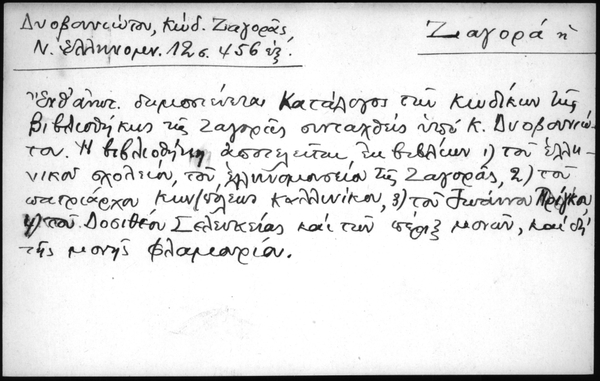 Δυοβουνιώτου, κώδ. Ζαγορᾶς,
Ν. Ἑλληνομν. 12 σ. 456 ἑξ.
Ζαγορά ἡ
Ἐνθ' ἀνωτ. δημοσιεύεται Κατάλογος τῶν κωδίκων τῆς
βιβλιοθήκης τῆς Ζαγορᾶς συνταχθείς ὑπό Κ. Δυοβουνιώ-
του. Ἡ βιβλιοθήκη ἀποτελεῖται ἐκ βιβλίων 1) τοῦ ἑλλη-
νικοῦ σχολείου, τοῦ ἑλληνομουσείου τῆς Ζαγορᾶς, 2) τοῦ
πατριάρχου Κων/πόλεως Καλλινίκου, 3) τοῦ Ἰωάννου Πρίγκου
4) τοῦ Δοσιθέου Σελευκείας καί τῶν πέριξ μονῶν, καί δή
τῆς μονῆς Φλαμουρίου.